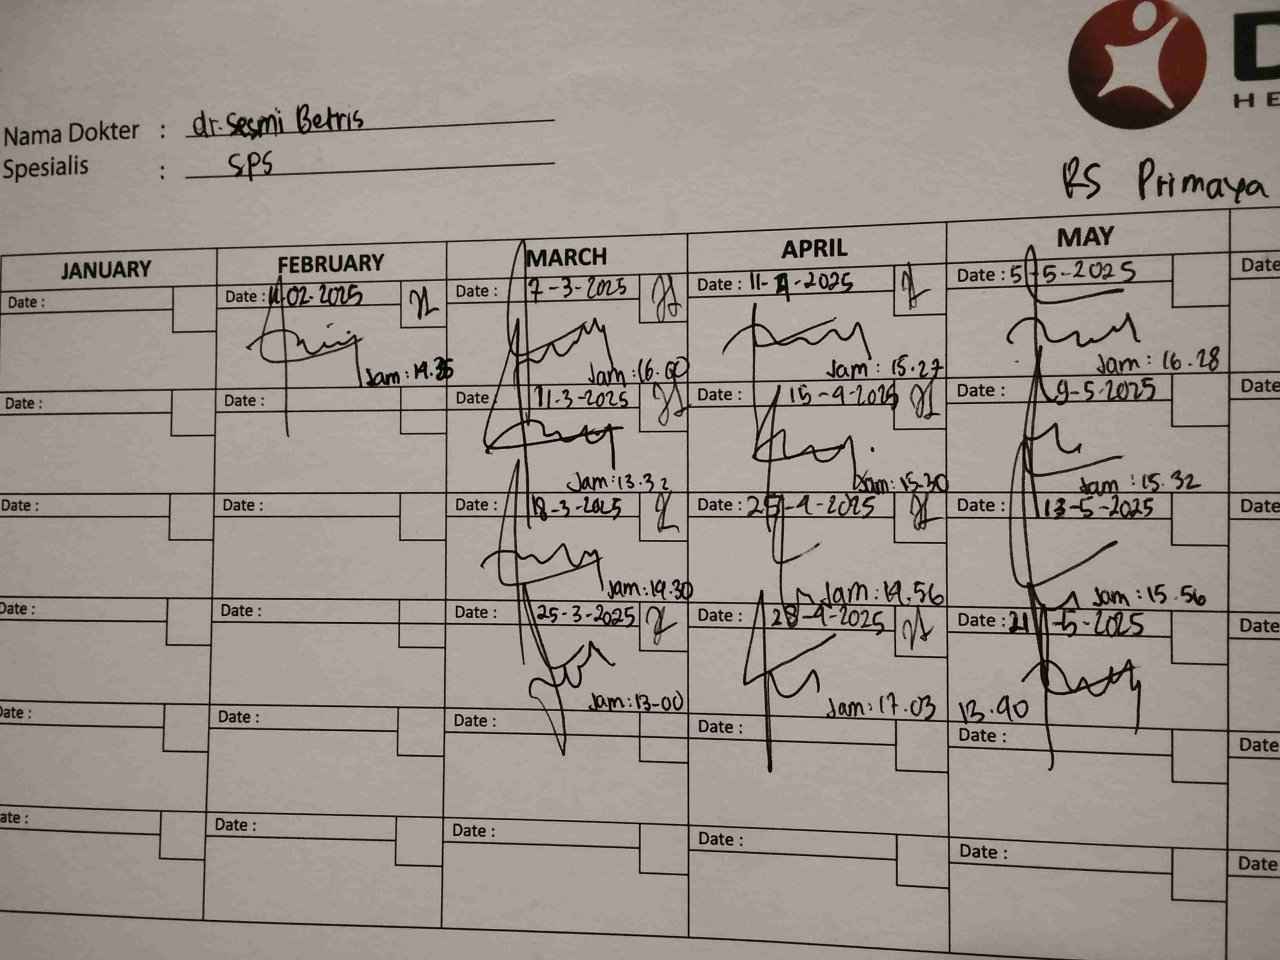 D
HE
Nama Dokter : dr. Sesmi Betris
Spesialis : SPS
RS Primaya
JANUARY FEBRUARY MARCH APRIL MAY
Date : Date : 11-02-2025 Date : 7-3-2025 Date : 11-4-2025 Date : 5-5-2025 Date
Jam: 14.35 Jam: 16.00 Jam: 15.27 Jam: 16.28
Date : Date : Date : 11-3-2025 Date : 15-4-2025 Date : 9-5-2025 Date
Jam: 13.32 Jam: 15.30 Jam: 15.32
Date : Date : Date : 18-3-2025 Date : 25-4-2025 Date : 13-5-2025 Date
Jam: 14.30 Jam: 14.56 Jam: 15.56
Date : Date : Date : 25-3-2025 Date : 28-4-2025 Date : 21-5-2025 Date
Jam: 13-00 Jam: 17.03 13.40
Date : Date : Date : Date : Date : Date
ate : Date : Date : Date : Date : Date